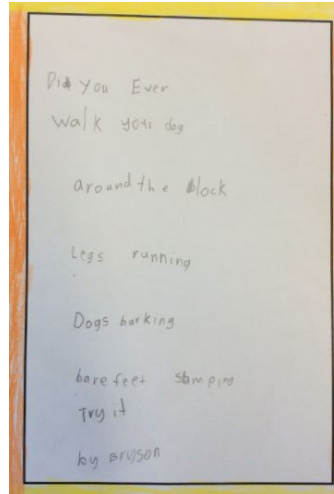 Did you Ever
Walk your dog
around the block
Legs running
Dogs barking
bare feet stmping
Try it
by Bryson